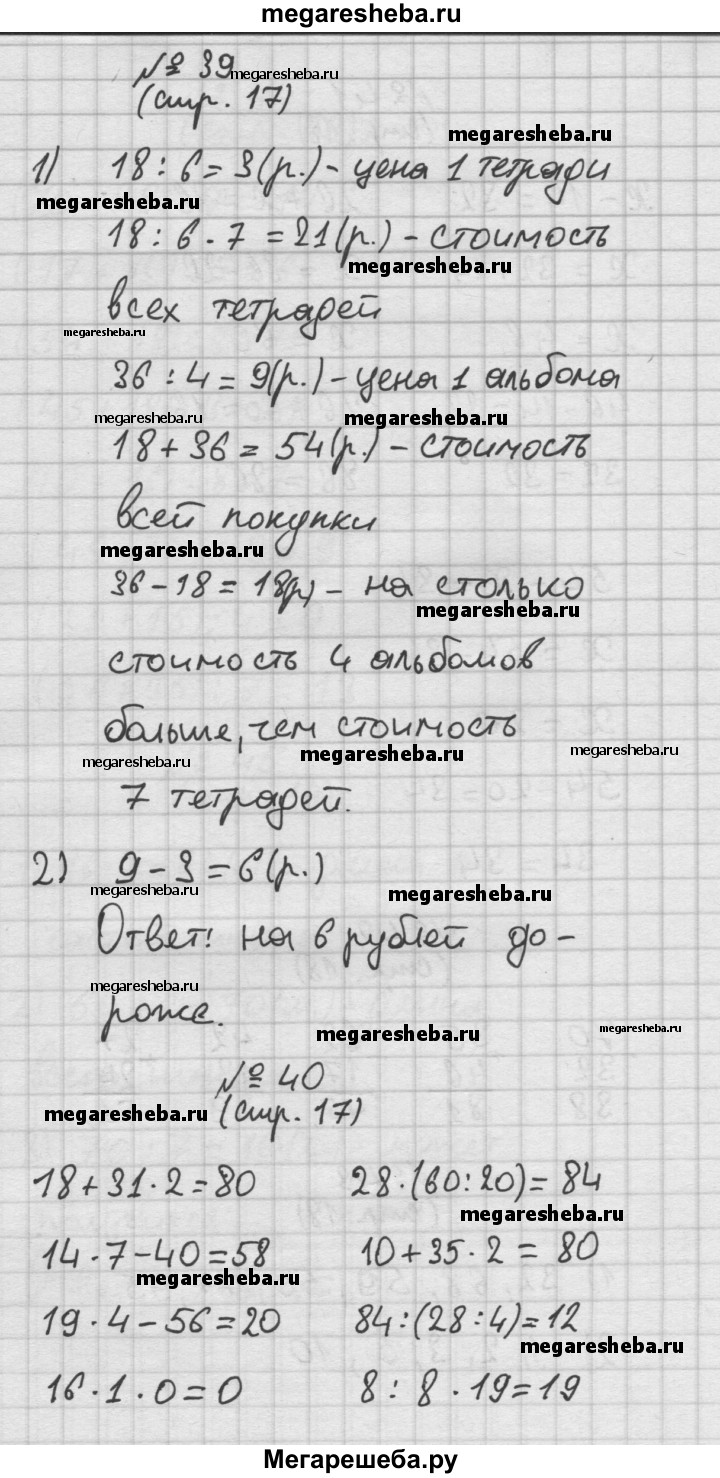 megaresheba.ru
№ 39 megaresheba.ru
(стр. 17)
megaresheba.ru
1) 18 : 6 = 3(р.) - цена 1 тетради
megaresheba.ru
18 : 6 · 7 = 21(р.) - стоимость
megaresheba.ru
всех тетрадей
megaresheba.ru
36 : 4 = 9(р.) - цена 1 альбома
megaresheba.ru megaresheba.ru
18 + 36 = 54(р.) - стоимость
всей покупки
megaresheba.ru
36 - 18 = 18(р) - на столько
megaresheba.ru
стоимость 4 альбомов
больше, чем стоимость
megaresheba.ru megaresheba.ru megaresheba.ru
7 тетрадей.
2) 9 - 3 = 6(р.)
megaresheba.ru megaresheba.ru
Ответ! на 6 рублей до-
megaresheba.ru
роже.
megaresheba.ru megaresheba.ru
№ 40
megaresheba.ru (стр. 17)
18 + 31 · 2 = 80 28 · (60 : 20) = 84
megaresheba.ru
14 · 7 - 40 = 58 10 + 35 · 2 = 80
megaresheba.ru
19 · 4 - 56 = 20 84 : (28 : 4) = 12
megaresheba.ru
16 · 1 · 0 = 0 8 : 8 · 19 = 19
Мегарешеба.ру